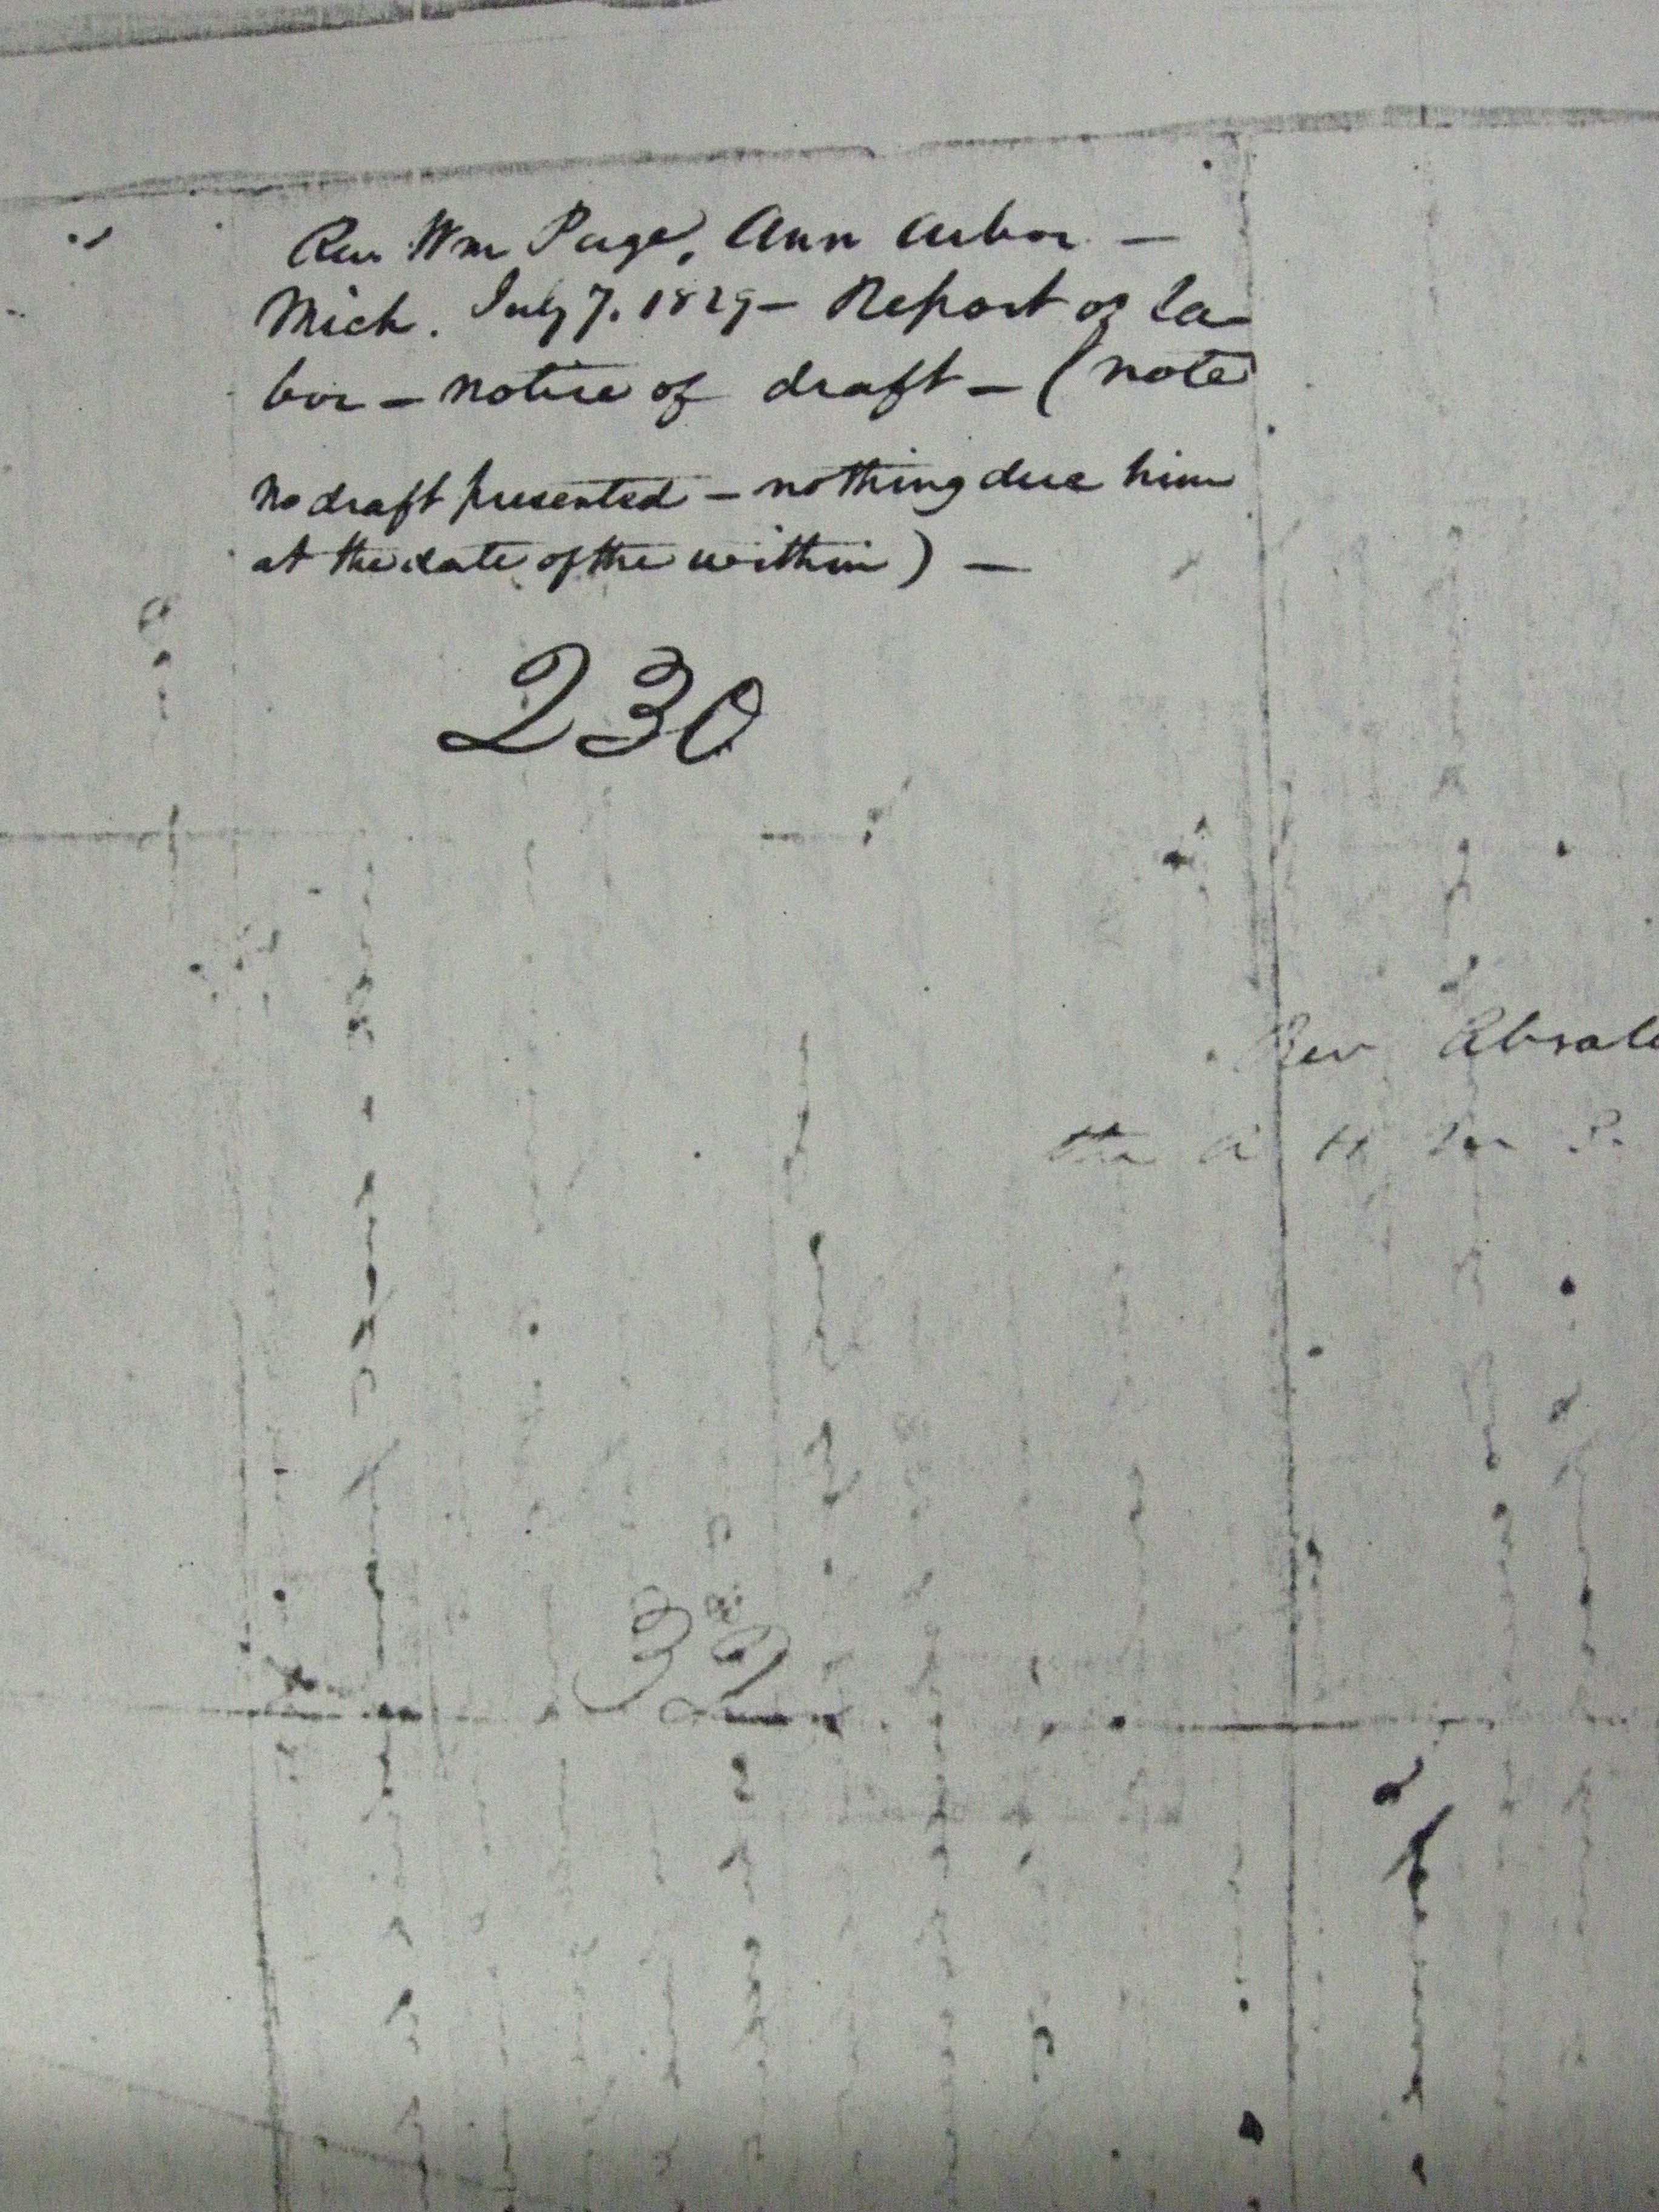 Rev Wm Page, Ann Arbor —
Mich. July 7. 1829 — Report of la-
bor — notice of draft — (note
no draft presented — nothing due him
at the date of the within) —
230
Rev Absalo
the A H M S.
32